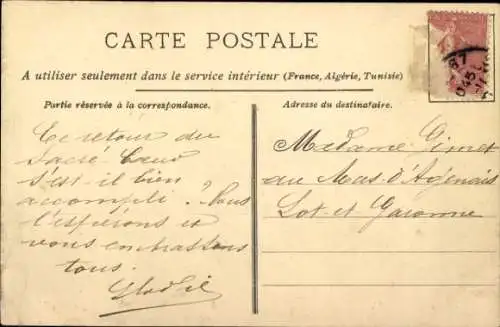 CARTE POSTALE
A utiliser seulement dans le service intérieur (France, Algérie, Tunisie)
Partie réservée à la correspondance.
Adresse du destinataire.
Le retour du
Sacré-Cœur
s'est-il bien
accompli ? Nous
l'espérons et
vous embrassons
tous.
Madame Gimet
au Mas d'Agenais
Lot et Garonne